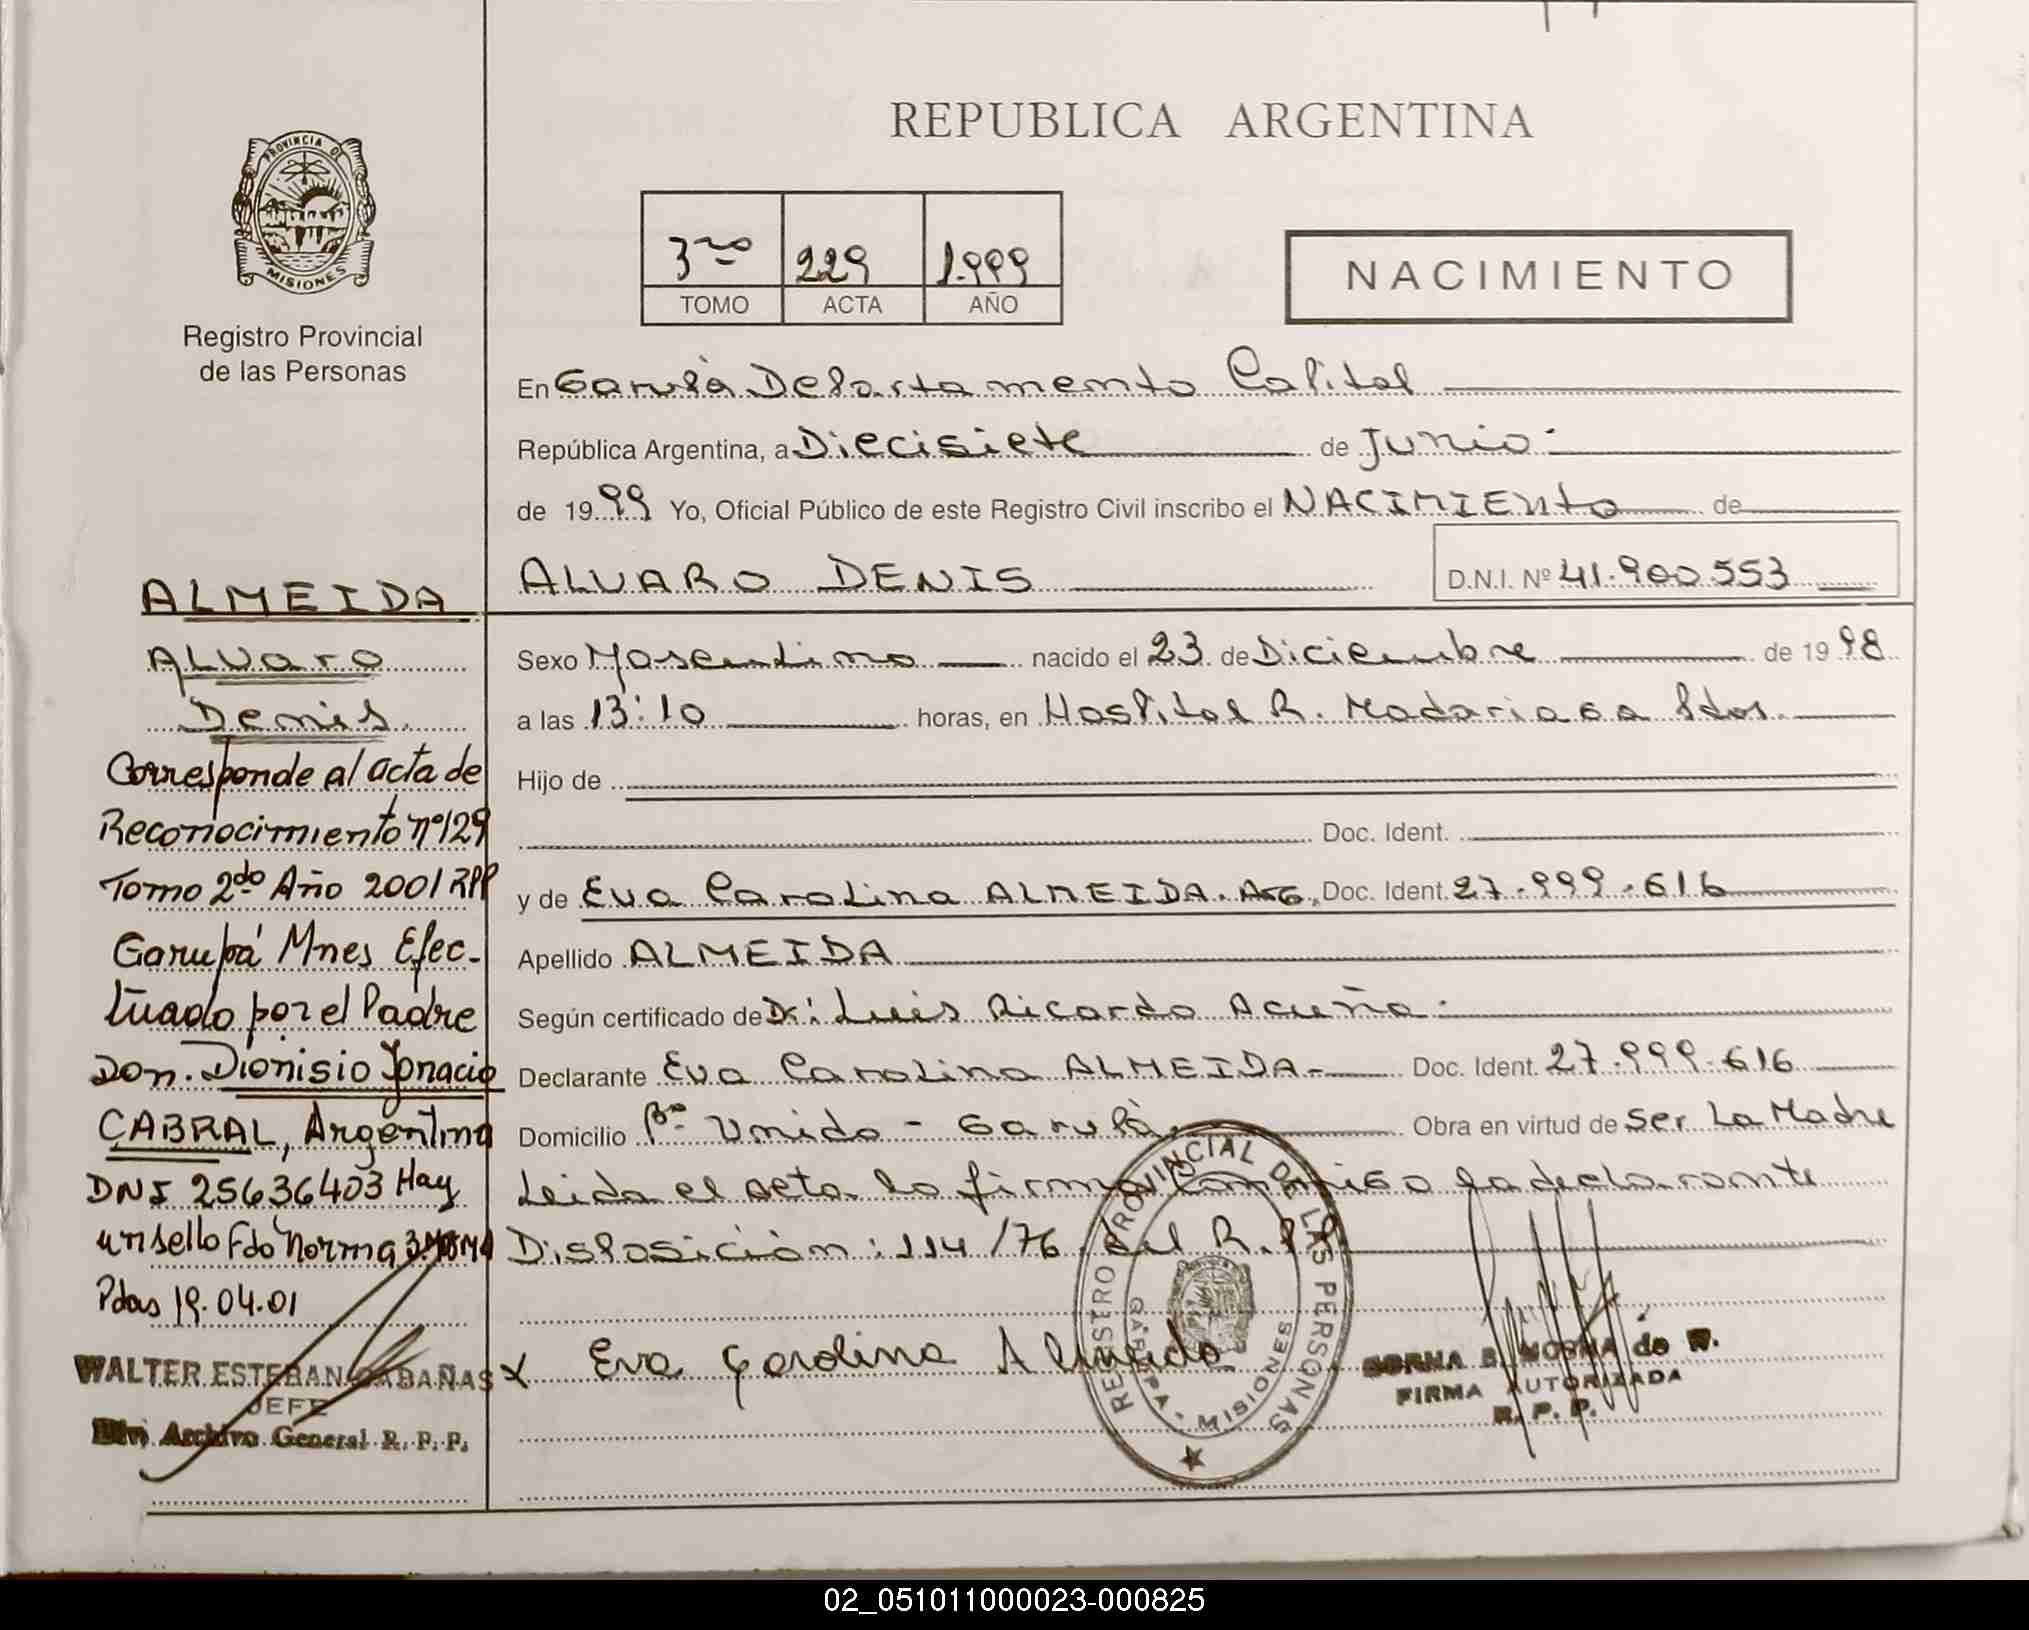 REPUBLICA ARGENTINA
PROVINCIA DE
MISIONES
Registro Provincial
de las Personas
3ro 229 1.999
TOMO ACTA AÑO
NACIMIENTO
En Garupá Departamento Capital
República Argentina, a Diecisiete de Junio.-
de 1999 Yo, Oficial Público de este Registro Civil inscribo el NACIMIENto de
ALVARO DENIS D.N.I. Nº 41.900.553
Sexo Masculino nacido el 23 de Diciembre de 1998
a las 13:10 horas, en Hospital R. Madariaga Pdas.
Hijo de
Doc. Ident.
y de Eva Carolina ALMEIDA. Arg. Doc. Ident. 27.999.616
Apellido ALMEIDA
Según certificado de Dr: Luis Ricardo Acuña.-
Declarante Eva Carolina ALMEIDA.- Doc. Ident. 27.999.616
Domicilio Bº Unido - Garupá Obra en virtud de Ser La Madre
Leida el acta la firma conmigo la declarante
Disposición: 114/76 del R.P.P.
Eva Carolina Almeida
REGISTRO PROVINCIAL DE LAS PERSONAS
GARUPA - MISIONES
NORMA B. MOSNA de W.
FIRMA AUTORIZADA
R. P. P.
ALMEIDA
Alvaro
Denis.
Corresponde al acta de
Reconocimiento nº129
Tomo 2do Año 2001 RPP
Garupá Mnes Efec-
tuado por el Padre
Don. Dionisio Ignacio
CABRAL, Argentino
DNI 25636403 Hay
un sello Fdo Norma B.
Pdas 19.04.01
WALTER ESTEBAN CABAÑAS
JEFE
Div. Archivo General R. P. P.
02_051011000023-000825